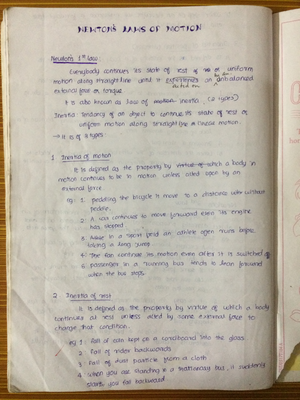 NEWTON'S LAWS OF MOTION
Newton's 1st law:
Everybody continues its state of rest or uniform
motion along straight line until it experiences an unbalanced
acted on by an
external force or torque
It is also known as law of inertia. (3 types)
Inertia: tendency of an object to continue its state of rest or
uniform motion along straight line linear motion.
→ It is of 3 types
1 Inertia of motion
It is defined as the property by virtue of which a body in
motion continues to be in motion unless acted upon by an
external force
eg 1. pedalling the bicycle to move to a distance with without
pedalling.
2. A car continues to move forward even its engine
has stopped
3. in a sport field an athlete again runs before
taking in long jump
4. The fan continues its motion even after it is switched
5. passenger in a running bus which is lean forward
when the bus stops
2 Inertia of rest
It is defined as the property by virtue of which a body
continues at rest unless acted by some external force to
change that condition.
eg 1: Fall of coin kept on a cardboard into the glass
2. Fall of rider backwards
3. Fall of dust particle from a cloth
4. when you are standing in a stationary bus, it suddenly
starts you fall backward